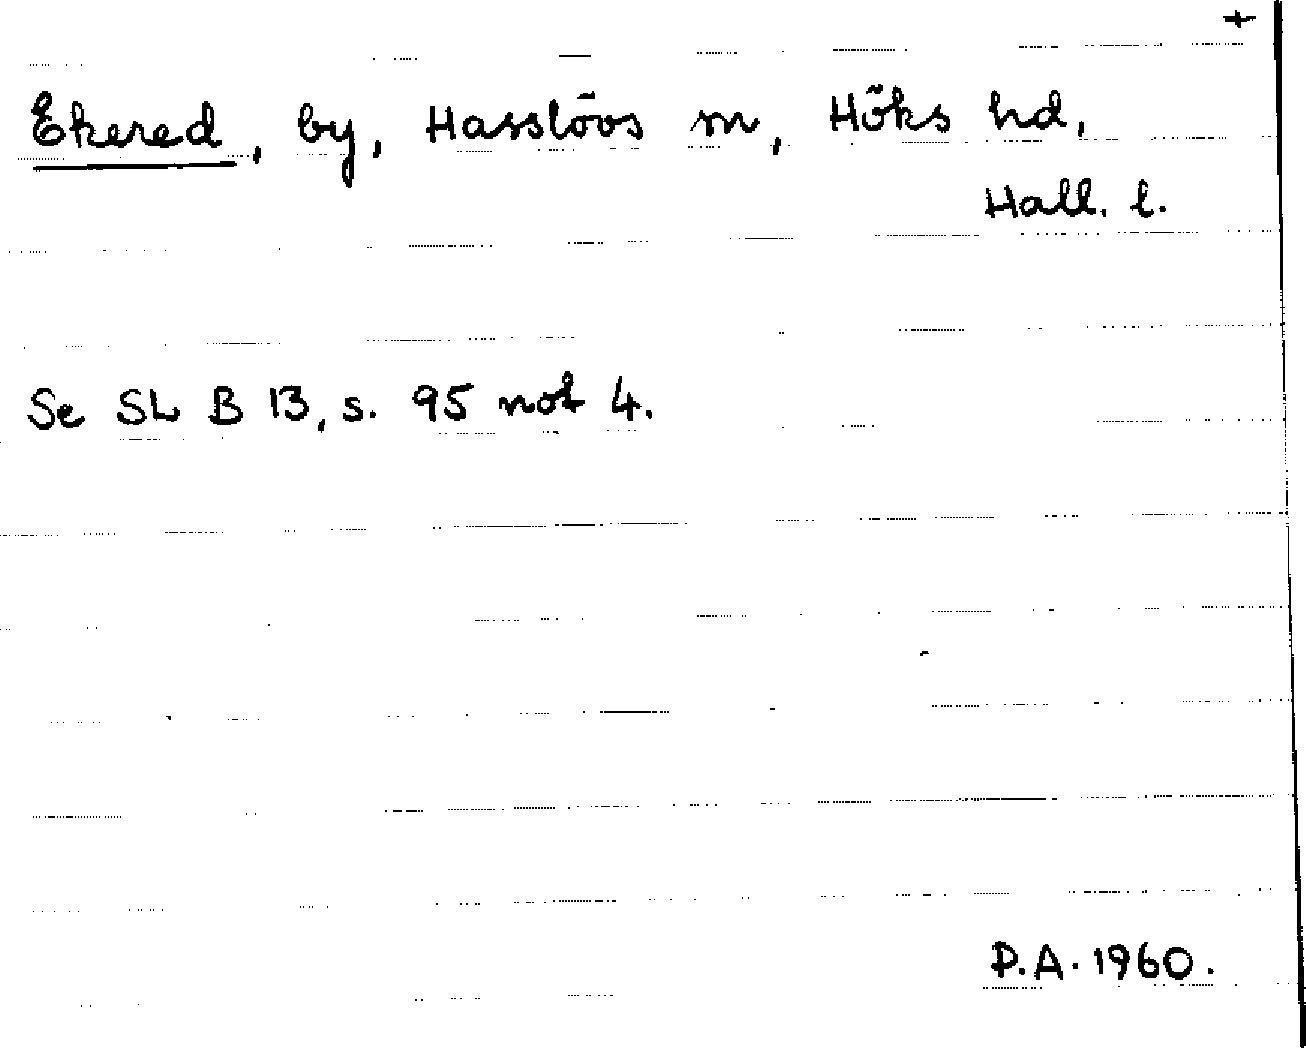 +
Ekered, by, Hasslövs sn, Höks hd,
Hall. l.
Se SL B 13, s. 95 not 4.
P.A. 1960.